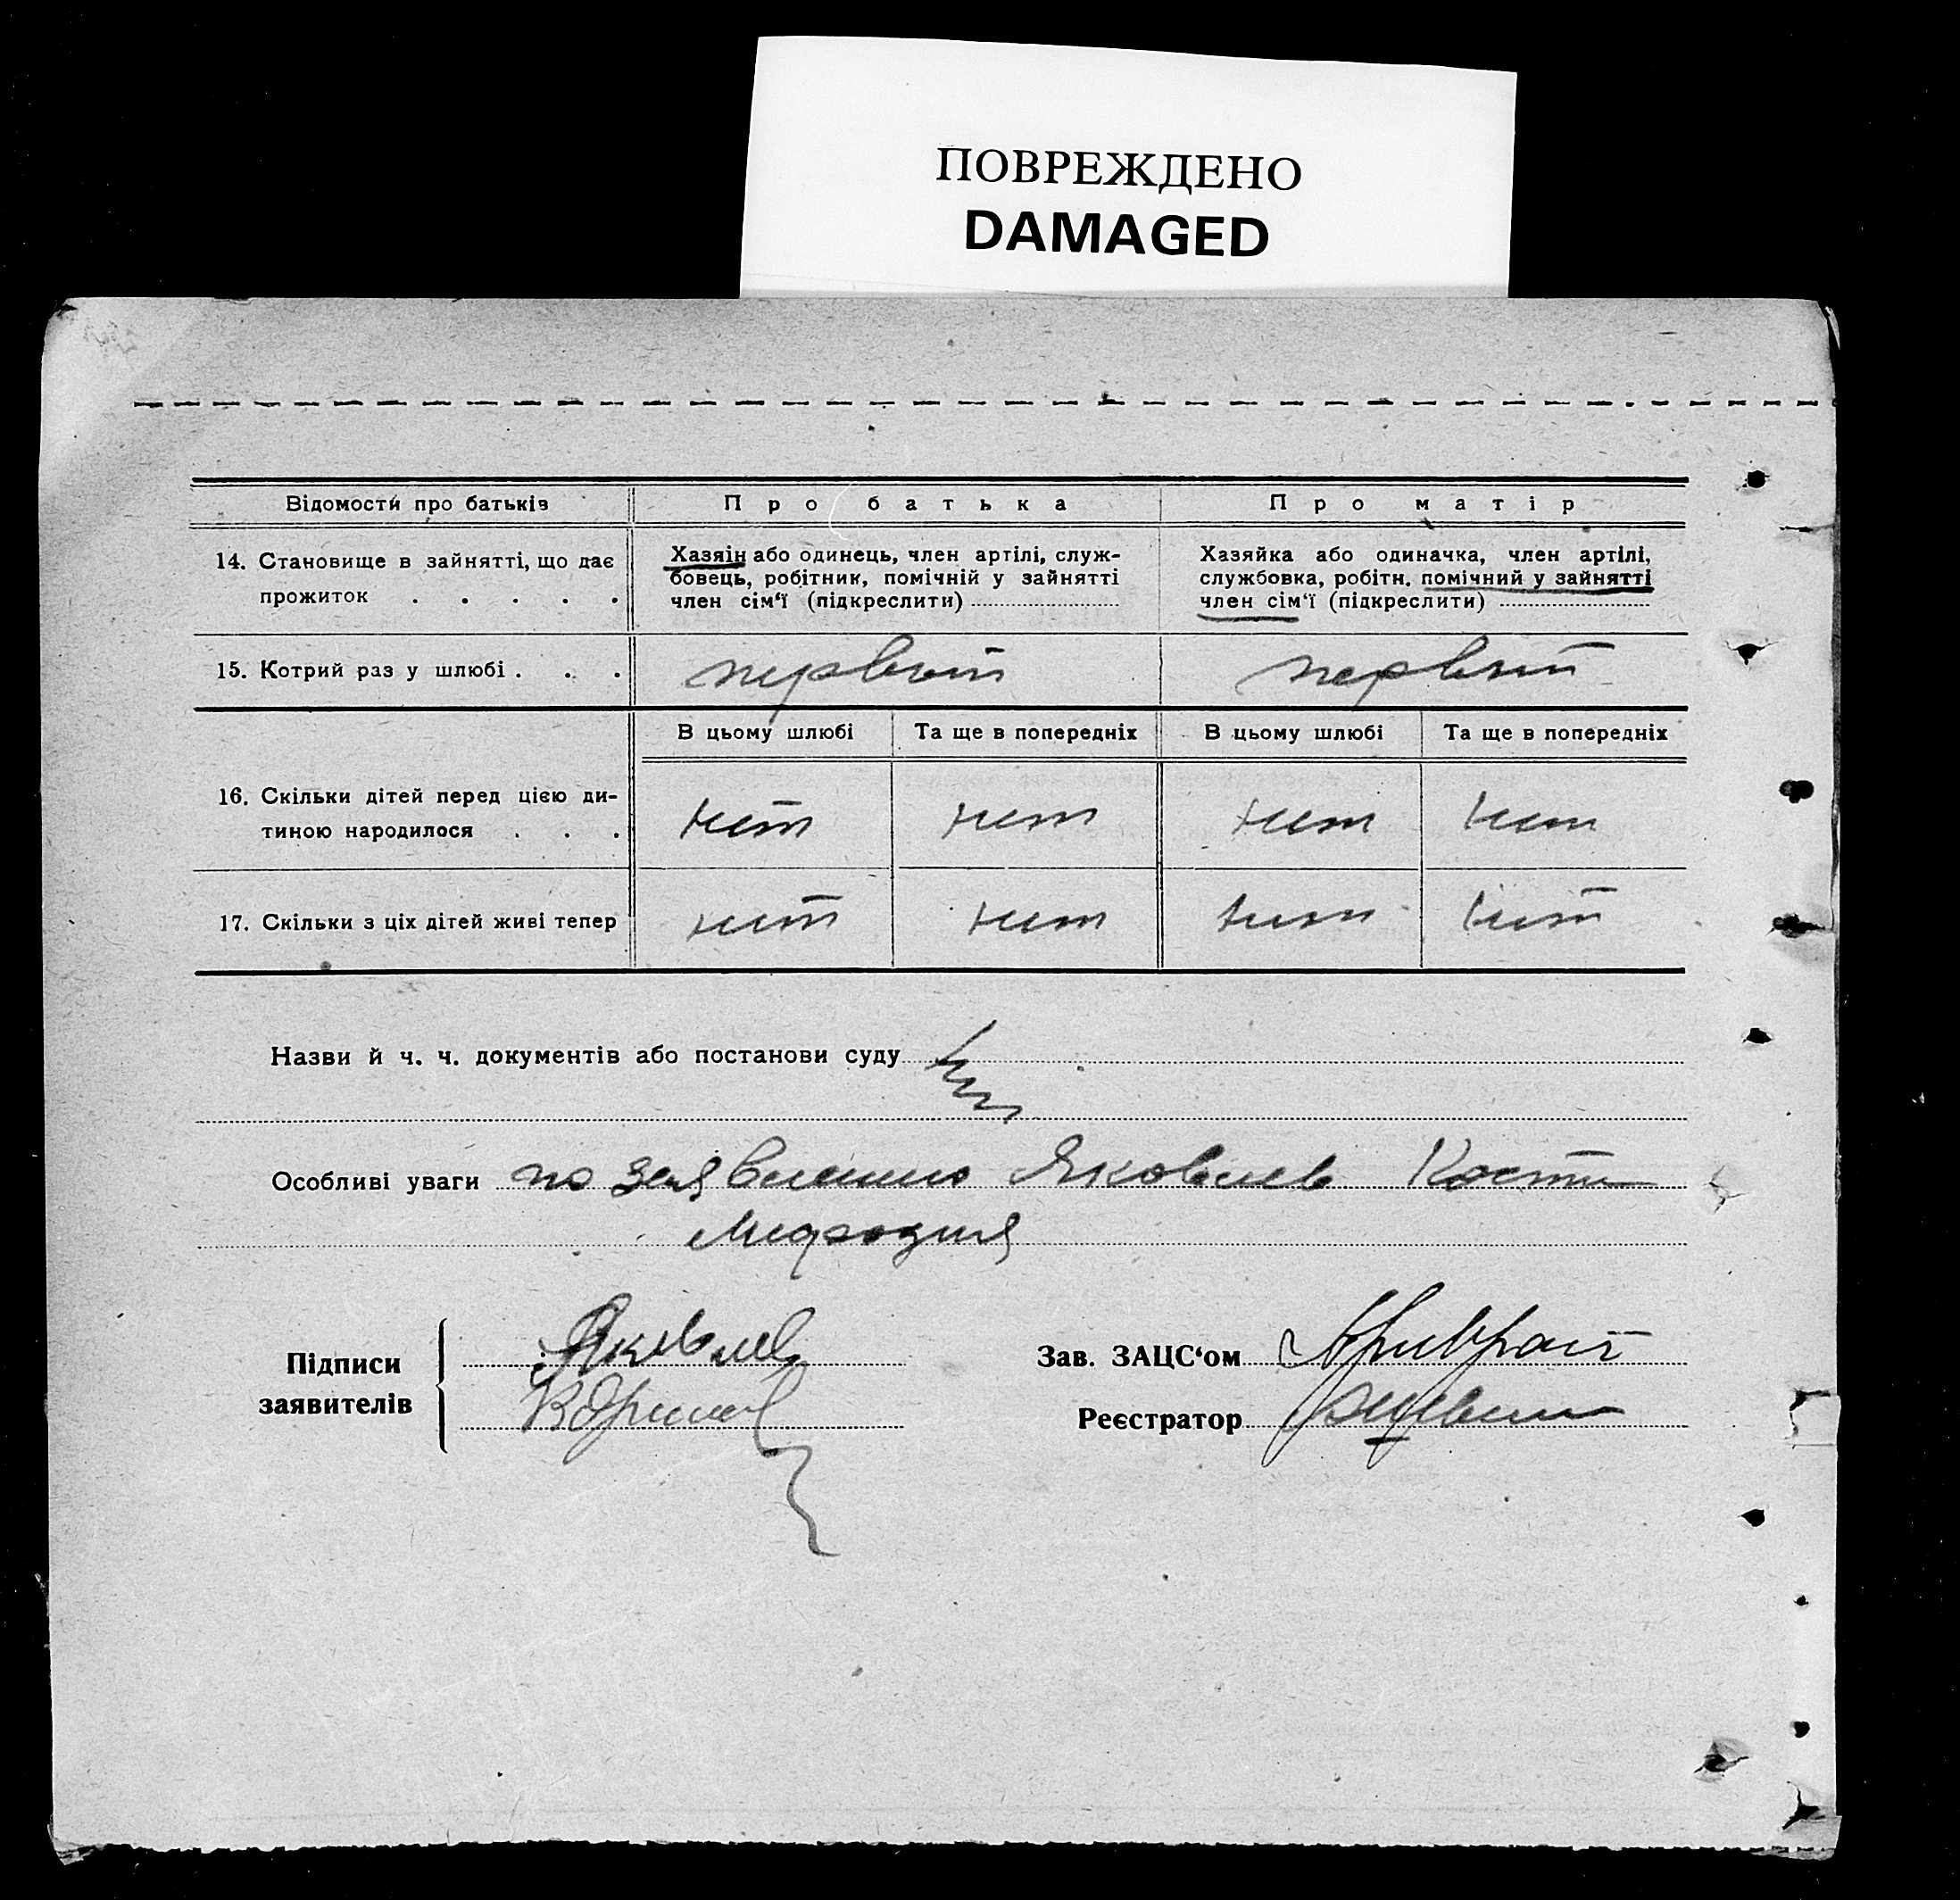 ПОВРЕЖДЕНО
DAMAGED
Відомости про батьків Про батька Про матір
14. Становище в зайнятті, що дає прожиток . . . . .
Хазяін або одинець, член артілі, служ-
бовець, робітник, помічній у зайнятті
член сім‘ї (підкреслити)
Хазяйка або одиначка, член артілі,
службовка, робітн. помічний у зайнятті
член сім‘ї (підкреслити)
15. Котрий раз у шлюбі . . . первый первый
В цьому шлюбі Та ще в попередніх В цьому шлюбі Та ще в попередніх
16. Скільки дітей перед цією ди-
тиною народилося . . . нит нит нит нит
17. Скільки з ціх дітей живі тепер нит нит нит нит
Назви й ч. ч. документів або постанови суду
Особливі уваги по заявлению Яковлев Кости
Підписи
заявителів
Яковлев
Зав. ЗАЦС‘ом
Реєстратор